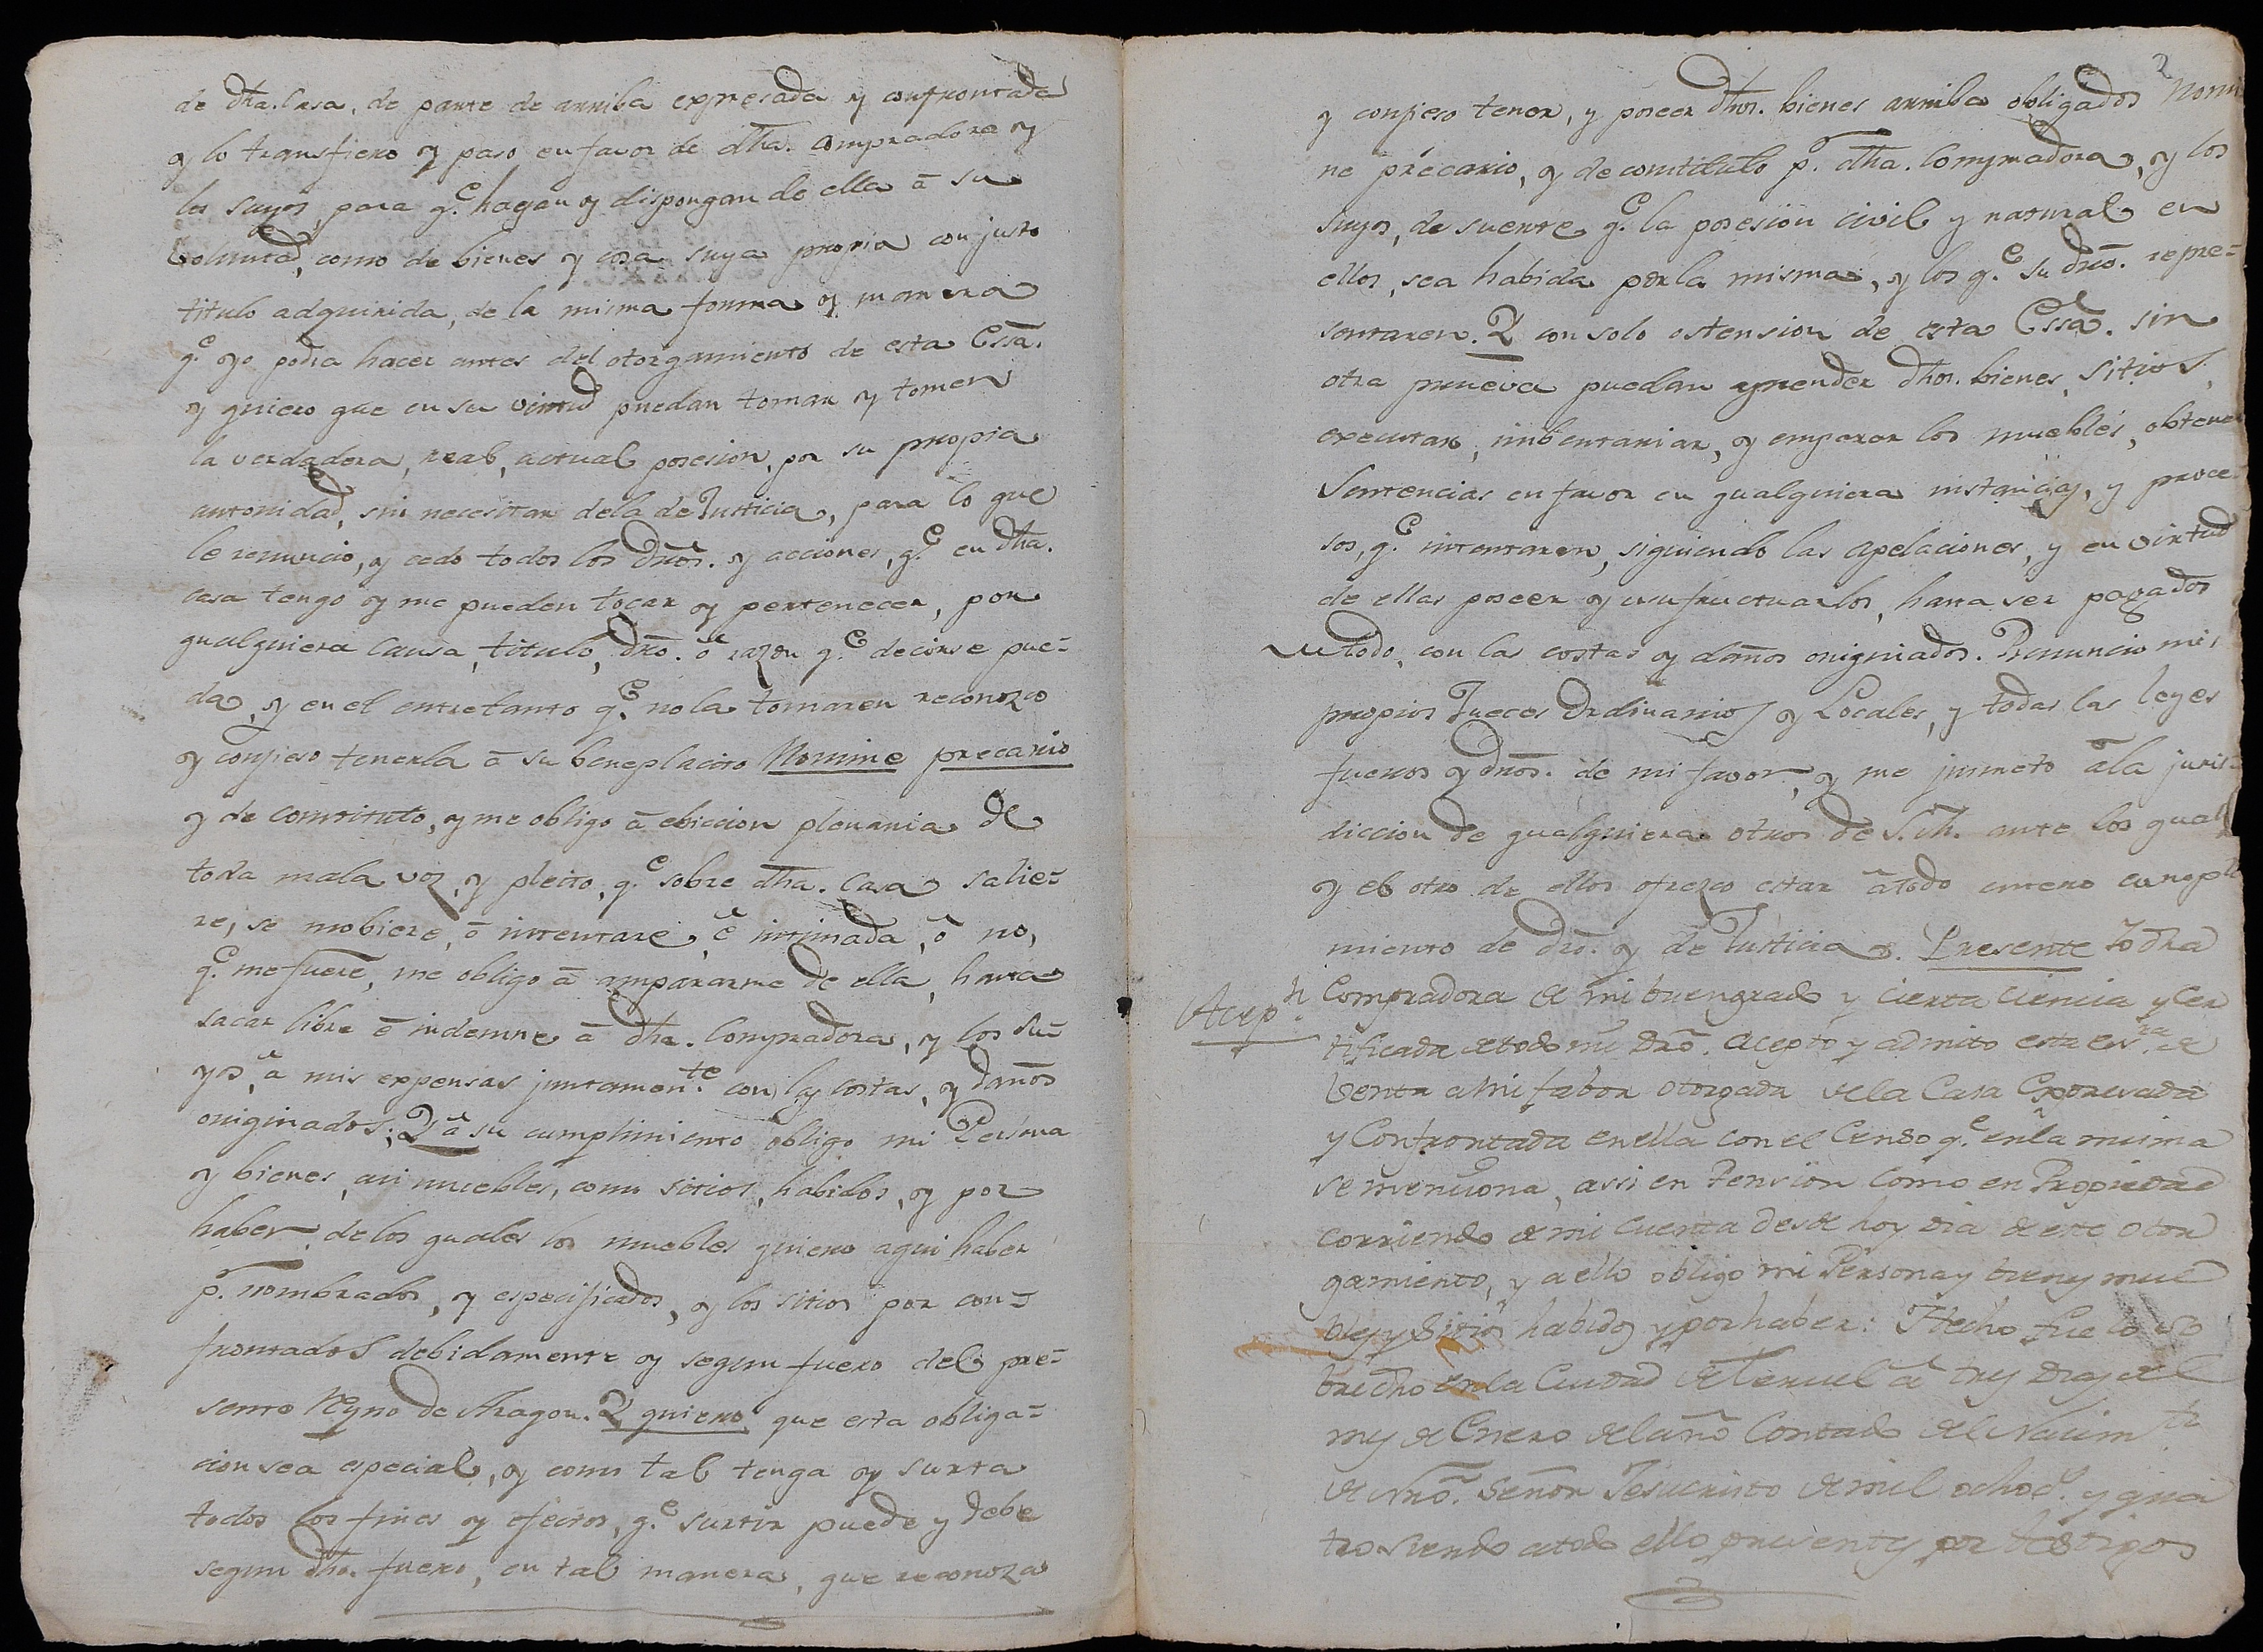 de dha. Casa, de parte de arriba expresada y confrontada
y lo transfiero y paso en favor de dha. Compradora y
los suyos, para q.e hagan y dispongan de ella á su
Voluntad, como de bienes y cosa suya propia con justo
titulo adquirida, de la misma forma y manera
q.e yo podia hacer antes del otorgamiento de esta Essã.
y quiero que en su virtud puedan tomar y tomen
la verdadera, real, actual posesion, por su propia
autoridad, sin necesitar dela de Justicia, para lo que
le renuncio, y cedo todos los Dr̃os. y acciones, q.e en dha.
casa tengo y me pueden tocar y pertenecer, por
qualquiera causa, titulo, dr̃o. ó razon q.e decirse pue-
da, y en el entretanto q.e nola tomaren reconozco
y confieso tenerla á su beneplacito Nomine precario
y de constituto, y me obligo á ebiccion plenaria de
toda mala voz, y pleito, q.e sobre dha. Casa salie-
re, se mobiere, ó intentare, é intimada, ó no,
q.e me fuere, me obligo á ampararme de ella, hasta
sacar libre é indemne á dha. Compradora, y los su-
yos, á mis expensas juntamen.te con las costas, y daños
originados; Y á su cumplimiento obligo mi Persona
y bienes, asi muebles, como sitios, habidos, y por
haber, de los quales los muebles quiero aqui haber
p.r nombrados, y especificados, y los sitios por con-
frontados debidamente y segun fuero del pre-
sente Reyno de Aragon. Y quiero que esta obliga-
cion sea especial, y como tal tenga y surta
todos los fines y efectos, q.e surtir puede y debe
segun dho. fuero, en tal manera, que reconozco
2
y confieso tener, y poseer dhos. bienes arriba obligados Nomi
ne precario, y de constituto p.r dha. Compradora, y los
suyos, de suerte q.e la posesion civil y natural en
ellos, sea habida por la misma, y los q.e su dr̃o. repre-
sentaren. Y con solo ostension de esta Essã. sin
otra prueva puedan aprender dhos. bienes, sitios,
executar, imbentariar, y emparar los muebles, obtener
Sentencias en favor en qualquiera instancias, y proce
sos, q.e intentaren, siguiendo las apelaciones, y en virtud
de ellas poseer y usufructuarlos, hasta ser pagados
de todo, con las costas y daños originados. Renuncio mis
propios Jueces Ordinarios y Locales, y todas las leyes
fueros y dr̃os. de mi favor, y me jusmeto á la juris-
diccion de qualquiera otros de S. M. ante los quales
y el otro de ellos ofrezco estar á todo entero cumpli
miento de dr̃o. y de Justicia. Presente Yo dha
Acep.n
Compradora de mi buengrado y cierta ciencia y cer
tificada de todo mi Dr̃o. acepto y admito esta es.ra de
Venta a mi fabor otorgada de la Casa Expresada
y Confrontada en ella con el Censo q.e en la misma
se menciona, assi en Pension como en Propiedad
corriendo de mi cuenta desde hoy dia de este otor
gamiento, y a ello obligo mi Persona y bienes mue
bles y Sitios habidos y por haber: Hecho fue lo so
bre dho en la Ciudad de Teruel á tres dias del
mes de Enero del año Contado del Nacim.to
de Nr̃o. Señor Jesucristo de mil ochoc.s y qua
tro siendo a todo ello presentes por testigos